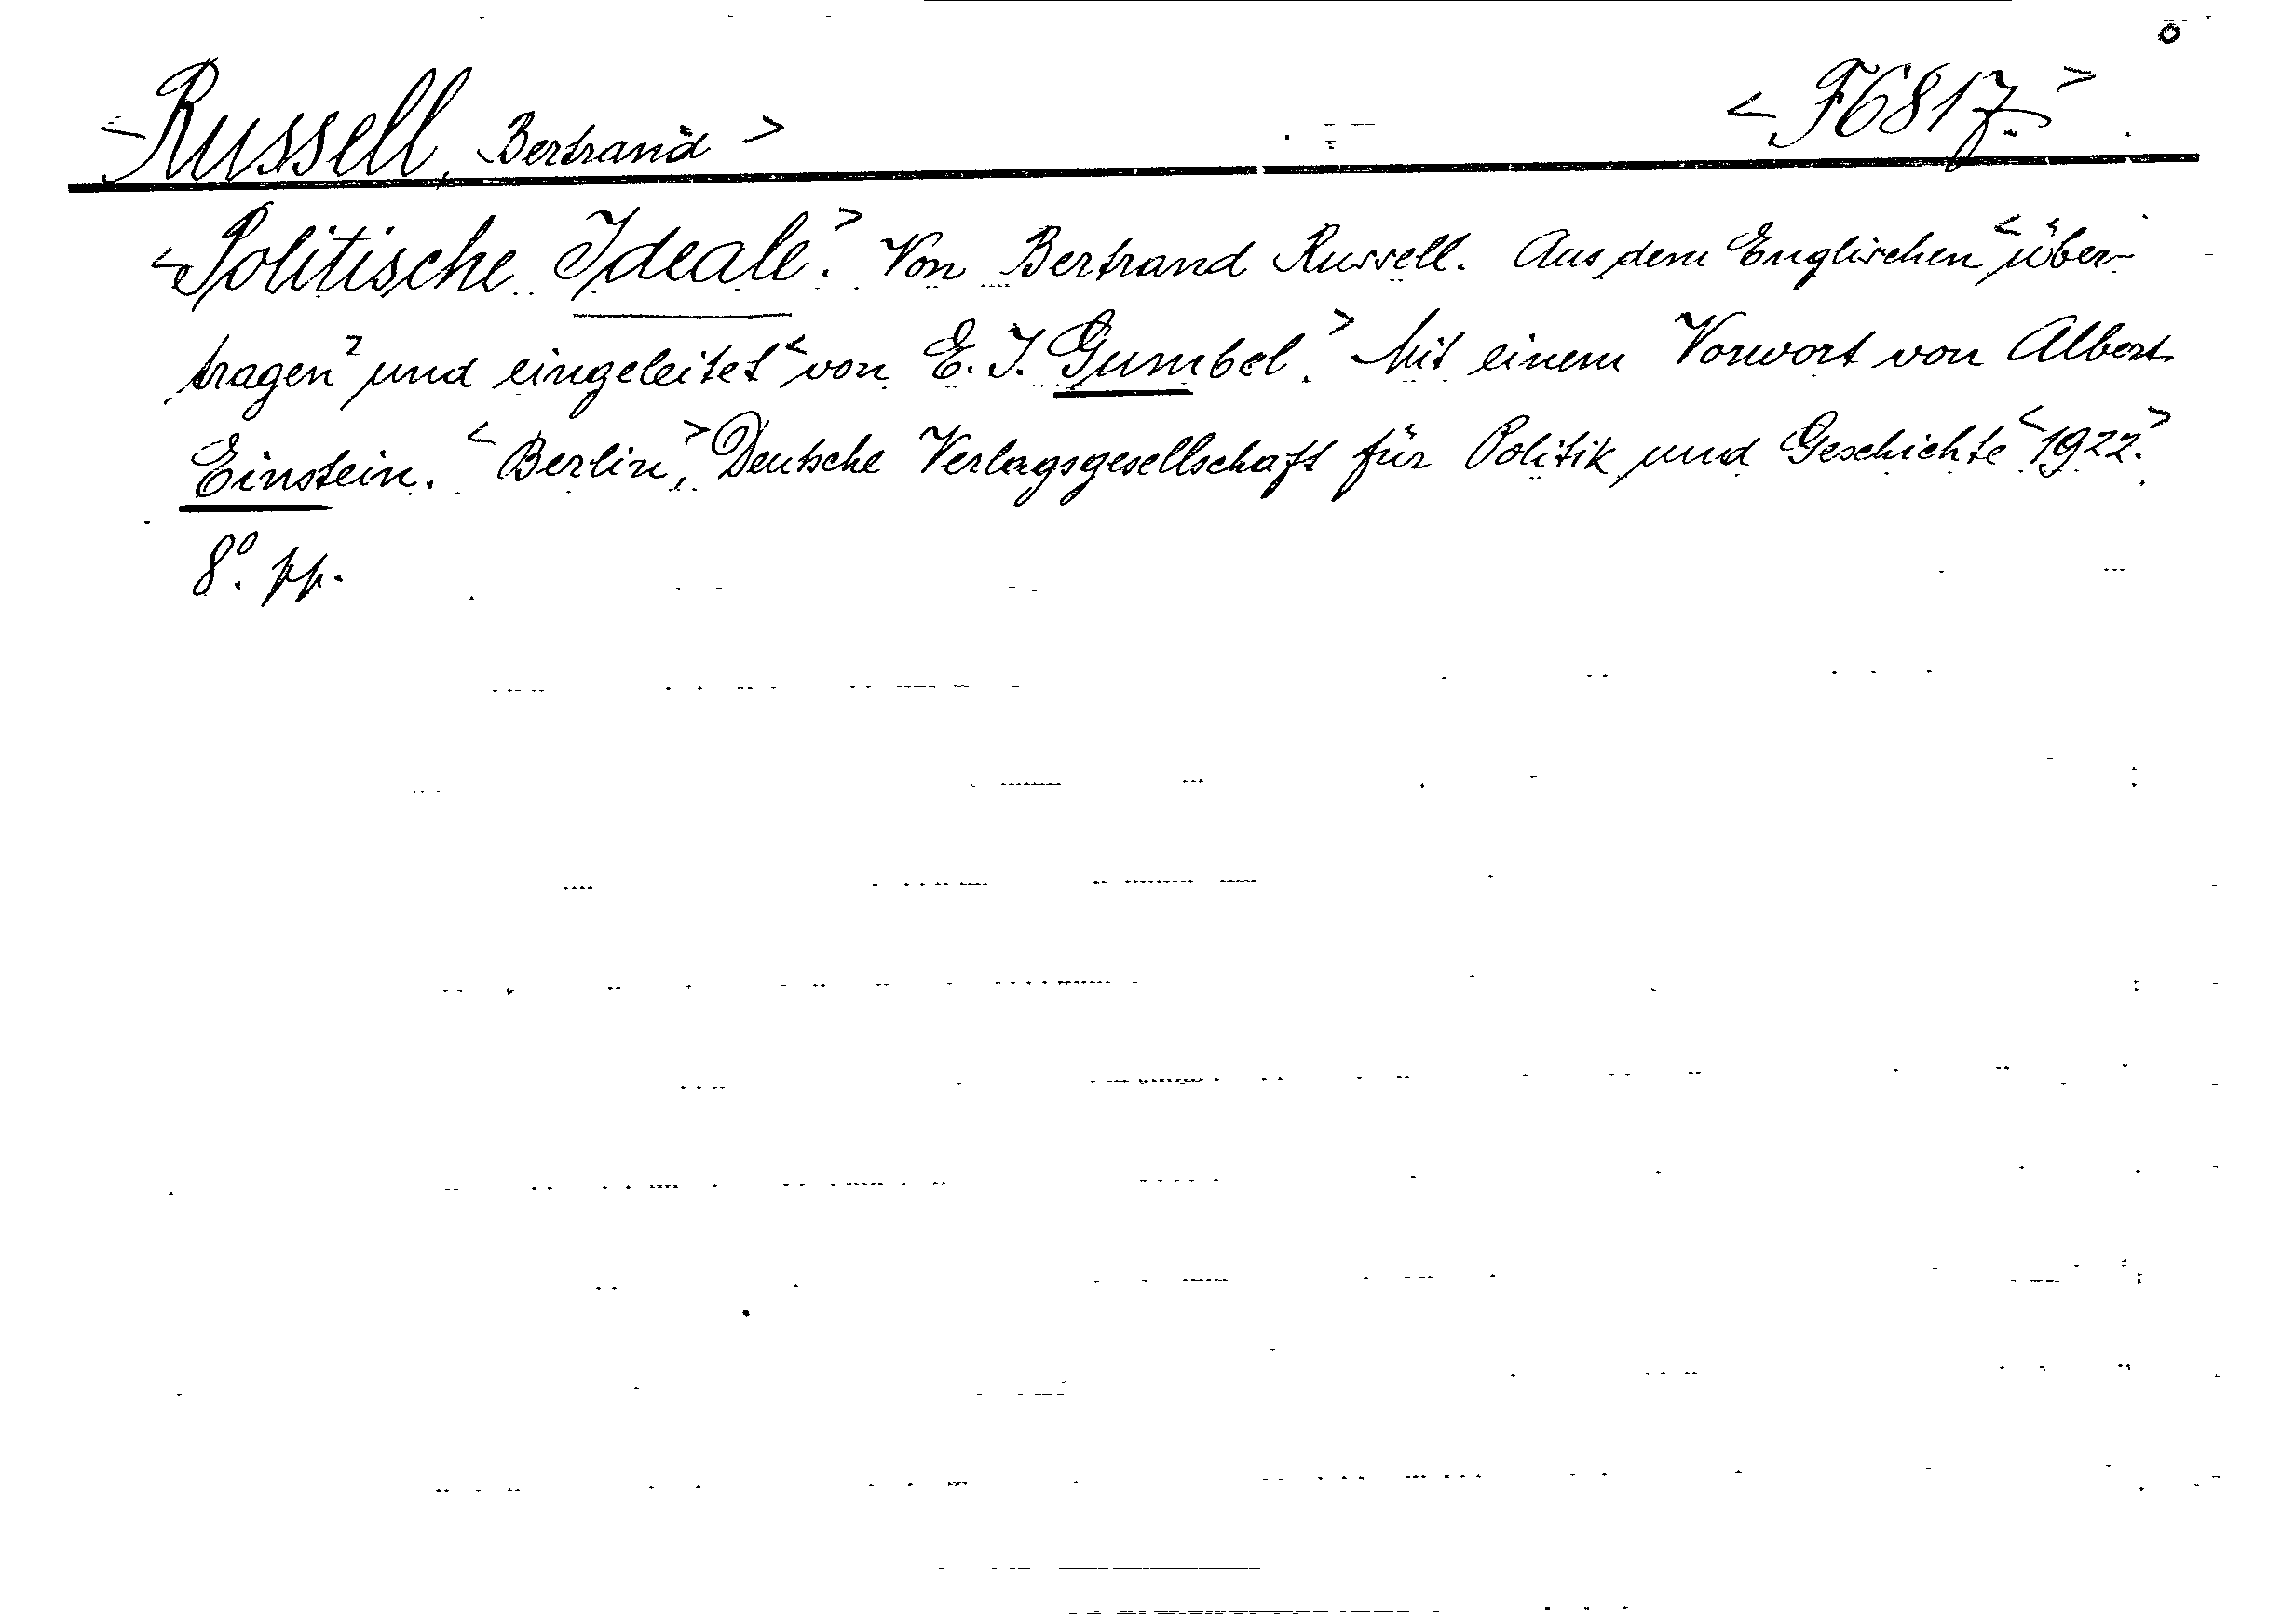 <Russell, Bertrand> <F6817>
<Politische Ideale.> Von Bertrand Russell. Aus dem Englischen <über-
tragen> und eingeleitet <von E. J. Gumbel.> Mit einem Vorwort von Albert
Einstein. <Berlin,> Deutsche Verlagsgesellschaft für Politik und Geschichte <1922.>
8º. pp.